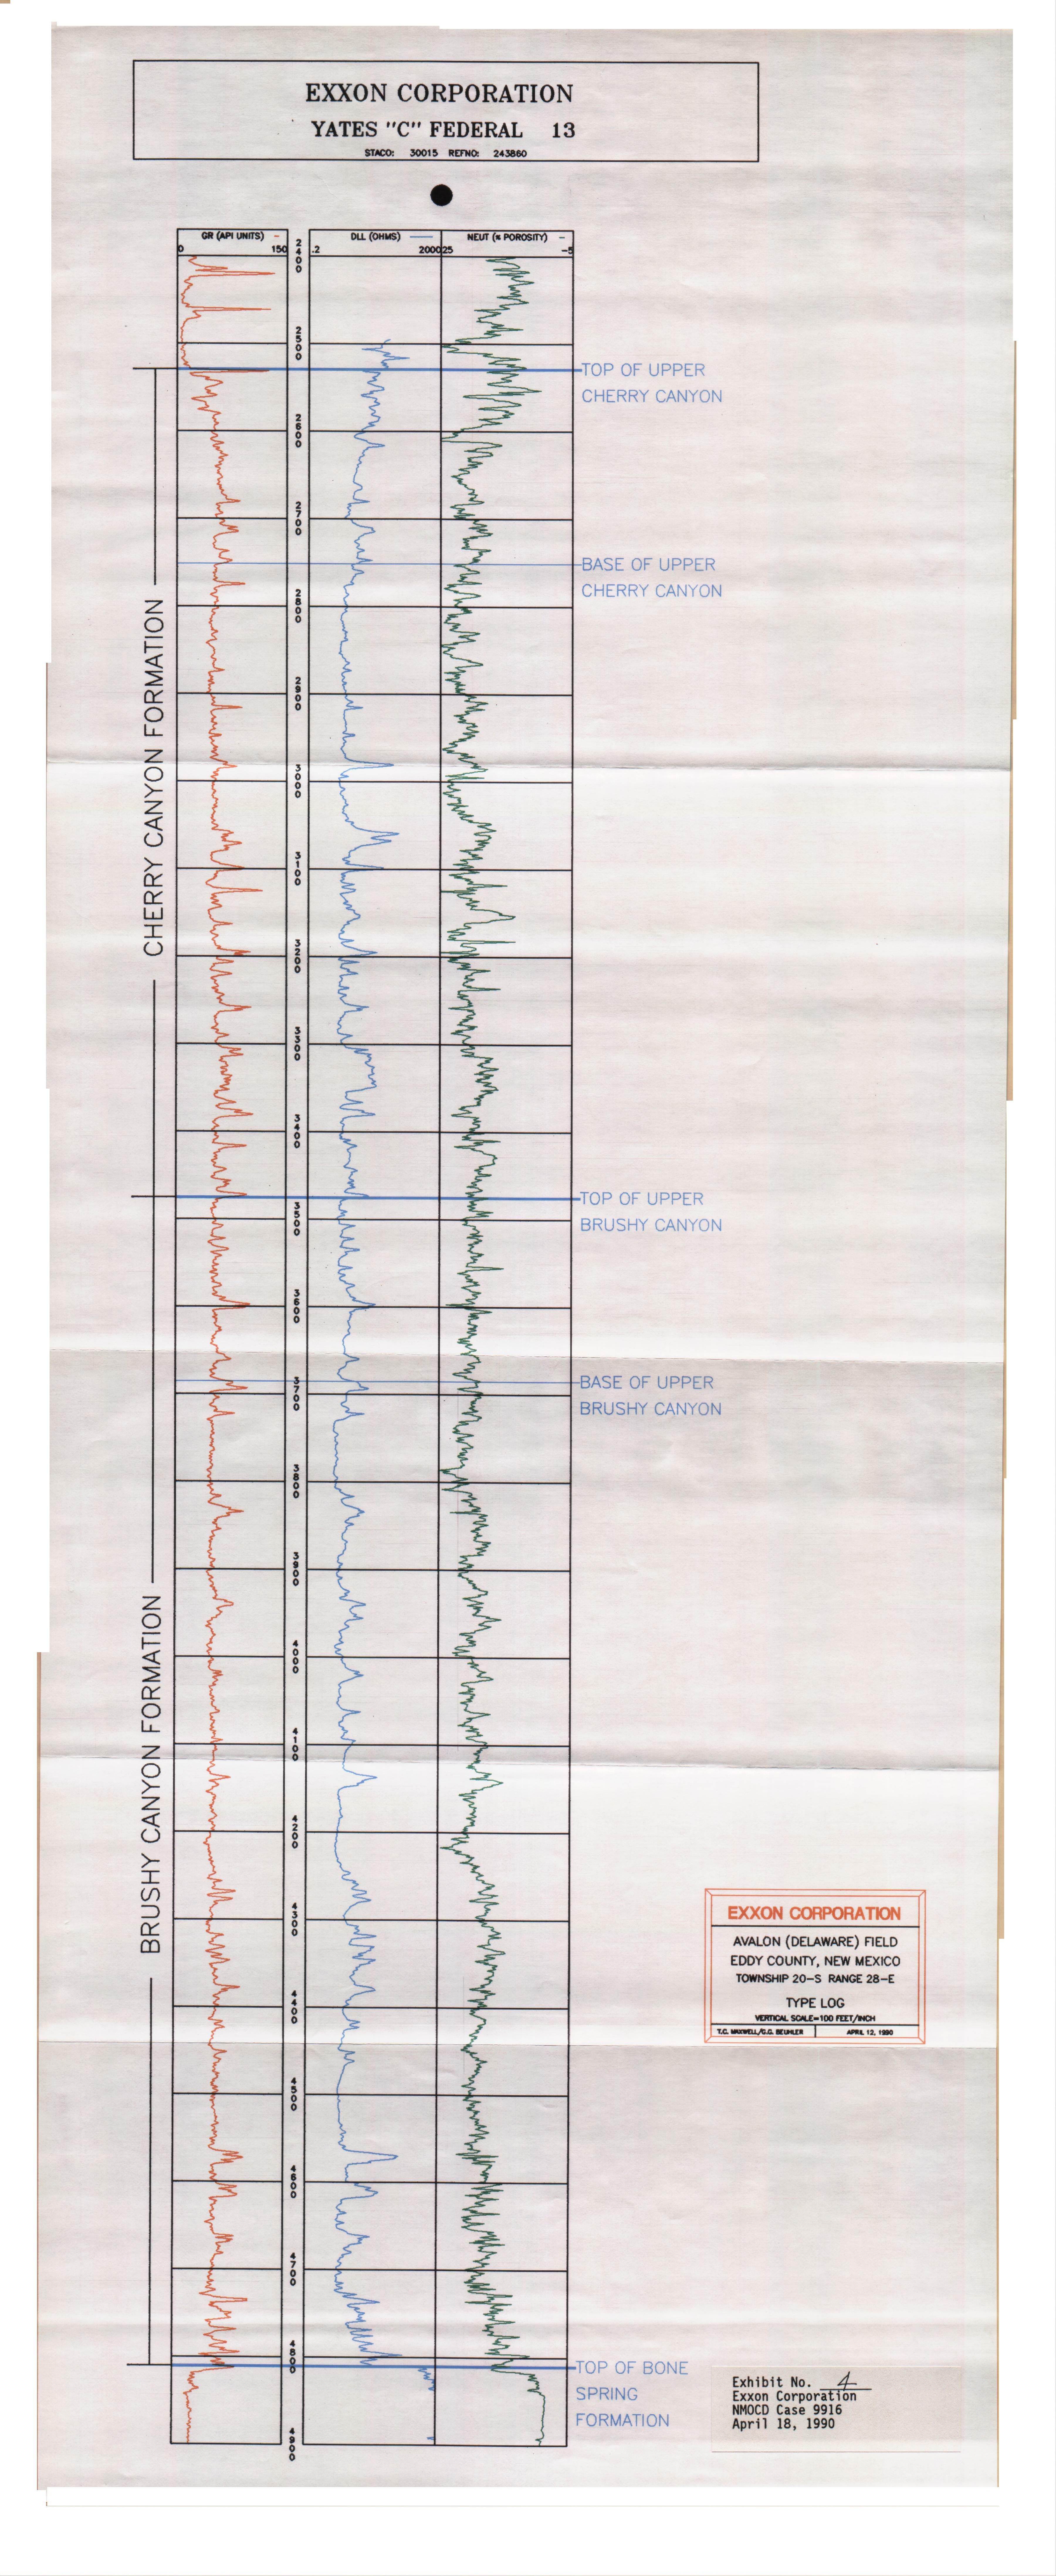 EXXON CORPORATION
YATES "C" FEDERAL 13
STACO: 30015 REFNO: 243860
GR (API UNITS)
0 150
DLL (OHMS)
.2 2000
NEUT (% POROSITY)
25 -5
2400
2500
TOP OF UPPER
CHERRY CANYON
2600
2700
BASE OF UPPER
CHERRY CANYON
2800
2900
CHERRY CANYON FORMATION
3000
3100
3200
3300
3400
TOP OF UPPER
BRUSHY CANYON
3500
3600
BASE OF UPPER
BRUSHY CANYON
3700
3800
3900
4000
4100
BRUSHY CANYON FORMATION
4200
4300
4400
4500
4600
4700
4800
TOP OF BONE
SPRING
FORMATION
4900
EXXON CORPORATION
AVALON (DELAWARE) FIELD
EDDY COUNTY, NEW MEXICO
TOWNSHIP 20-S RANGE 28-E
TYPE LOG
VERTICAL SCALE=100 FEET/INCH
T.C. MAXWELL/G.C. BEUHLER APRIL 12, 1990
Exhibit No. 4
Exxon Corporation
NMOCD Case 9916
April 18, 1990